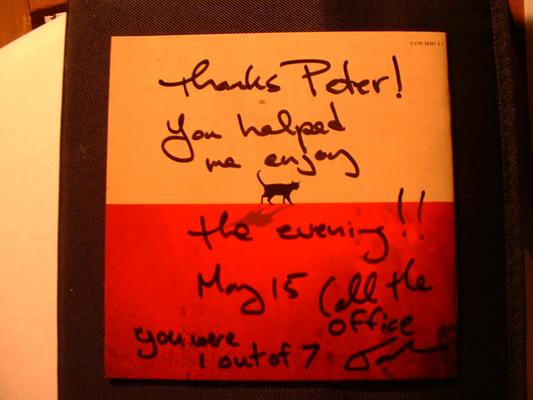 thanks Peter!
You helped
me enjoy
the evening!!
May 15
Call the
office
you were
1 out of 7